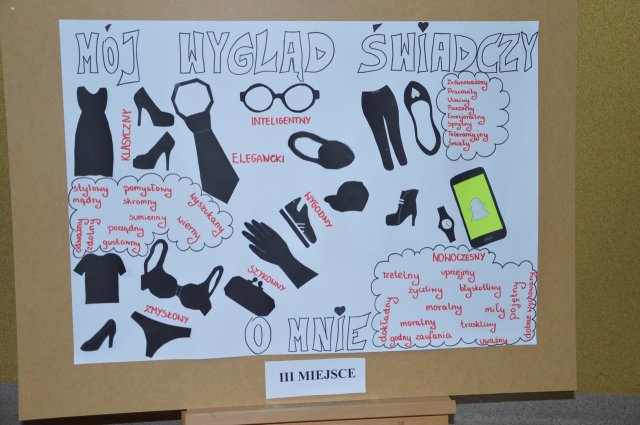 MÓJ WYGLĄD ŚWIADCZY
KLASYCZNY
INTELIGENTNY
ELEGANCKI
Zrównoważony
Pracowity
Uczciwy
Pomocny
Emocjonalny
Sprytny
Tolerancyjny
Śmiały
stylowy
pomysłowy
mądry
skromny
wyszukany
sumienny
wierny
odważny
zdolny
porządny
gustowny
WYGODNY
SZYKOWNY
ZMYSŁOWY
NOWOCZESNY
rzetelny
uprzejmy
życzliwy
błyskotliwy
pojętny
dokładny
moralny
miły
dobrze wychowany
moralny
troskliwy
godny zaufania
uważny
O MNIE
III MIEJSCE